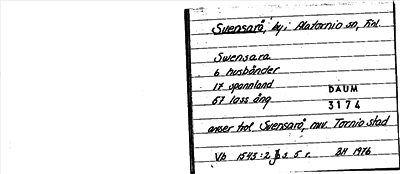 Svensarö, by i Alatornio sn, Finl.
Swensara
6 husbånder
17 spannland
67 lass äng
DAUM
3174
anser trol. Svensarö, nuv. Tornio stad
Vb 1545:2 s 5 r. BH 1976